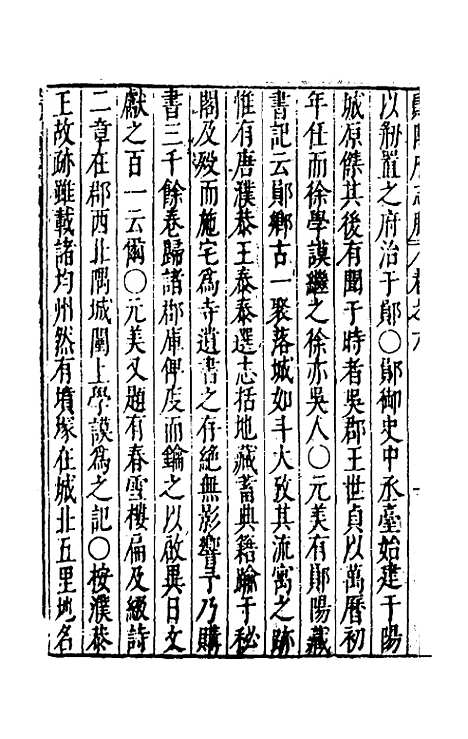 以剏置之府治于鄖○鄖御史中丞臺始建于陽
城原傑其後有聞于時者吳郡王世貞以萬曆初
年任而徐學謨繼之徐亦吳人○元美有鄖陽藏
書記云鄖鄉古一聚落城如斗大攷其流寓之跡
惟有唐濮恭王泰泰選志括地藏蓄典籍踰于秘
閣及歿而施宅為寺遺書之存絕無影響予乃購
書三千餘卷歸諸郡庫俾度而鑰之以啟異日文
獻之百一云爾○元美又題有春雪樓扁及綴詩
二章在郡西北隅城闉上學謨為之記○按濮恭
王故跡雖載諸均州然有墳塚在城北五里地名